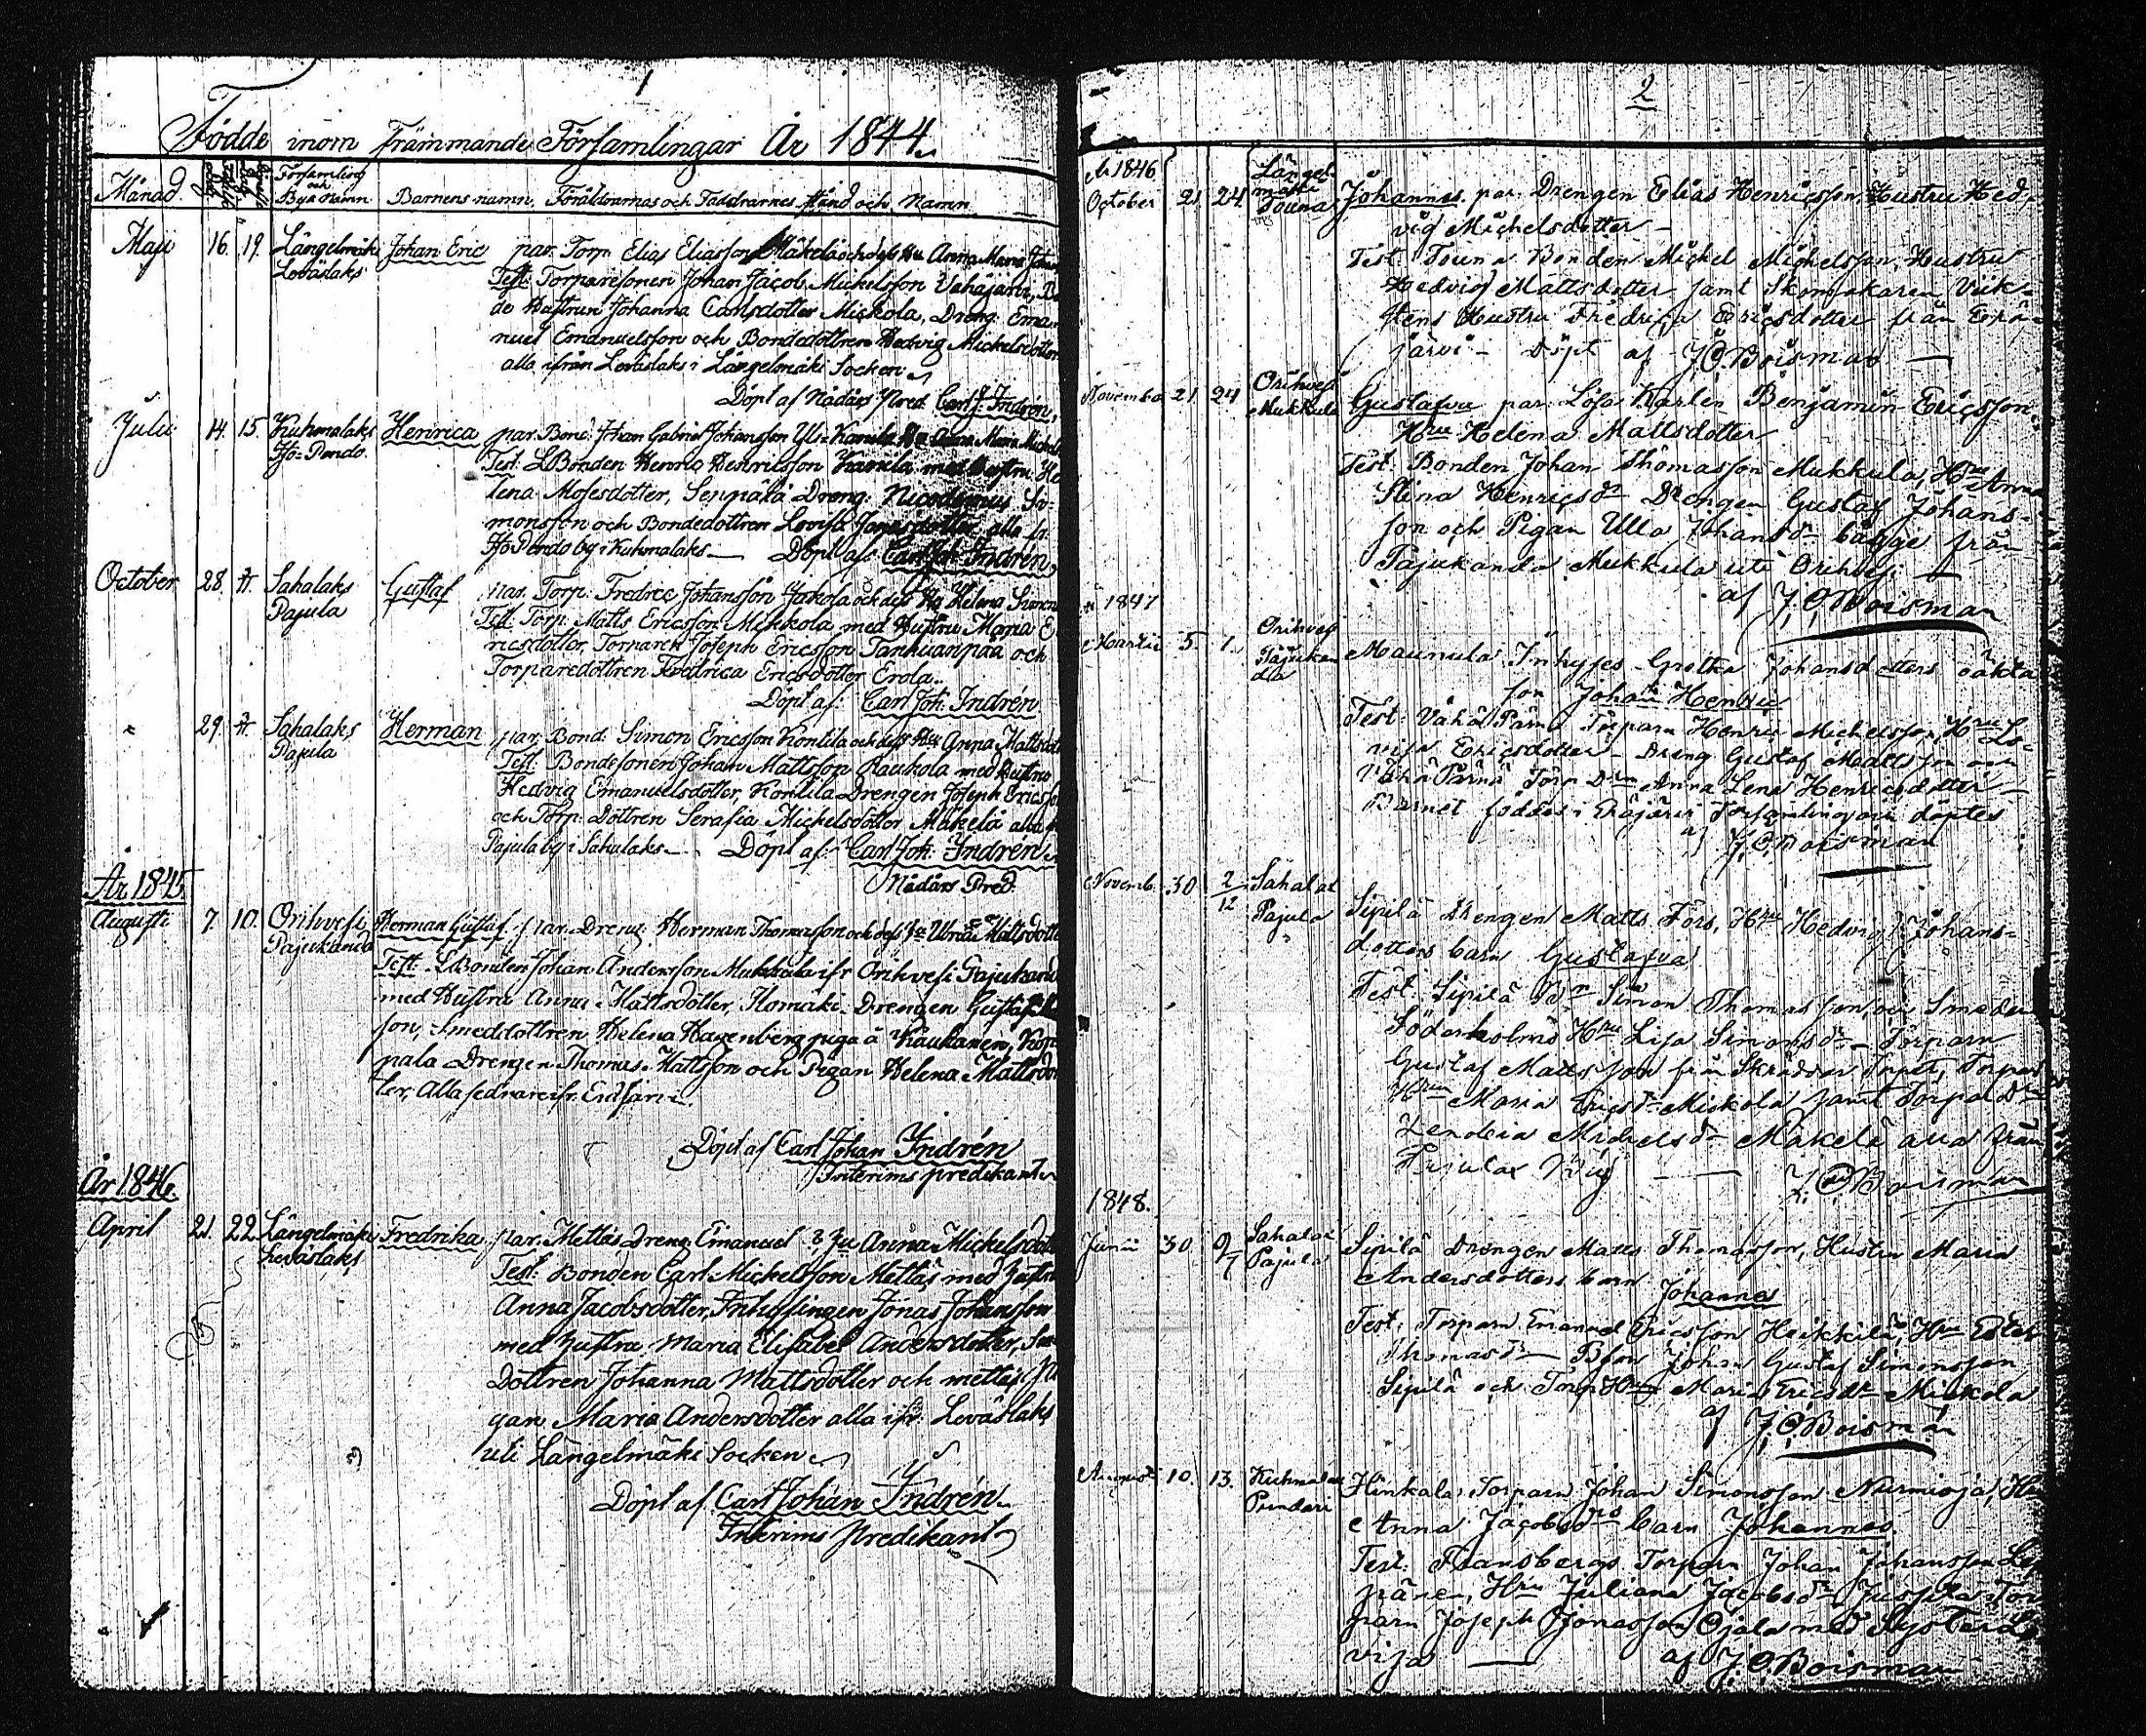 1
Födde inom främmande Församlingar År 1844.
Månad Församling och Bya namn Barnens namn, Föräldrarnas och Faddrarnes Stånd och Namn
Maji 16. 19. Längelmäki Johan Eric par. Torp. Elias Eliasson Mäkelä och dess Hu Anna Maria
Leväslaks Test. Torparesonen Johan Jacob Michelsson Vähäjärvi,
de Hustrun Johanna Carlsdotter Mickola, Dreng. Ema-
nuel Emanuelsson och Bondedottren Hedvig Mickelsdotter
alla ifrån Leväslaks i Längelmäki Socken
Döpt af Nådårs Pred. Carl J. Indrén,
Julii 14. 15. Kuhmalaks Henrica par. Bond. Johan Gabriel Johansson Yli-Karila Hu Anna Maria
Test. LBonden Henric Henricsson Karila med Hustru He-
lena Mosesdotter, Seppälä Dreng. Nicodemus Si-
monsson och Bondedottren Lovisa Jonasdotter, alla fr.
by i Kuhmalaks — Döpt af: Carl Joh. Indrén,
October 28. Sahalaks Gustaf par. Torp. Fredric Johansson Jakola och dess Hu Helena
Pajula Test. Torp. Matts Ericsson Mickola med Hustru Maria E-
ricsdotter, Torparen Joseph Ericsson Tanhuanpää och
Torparedottren Fredrica Ericsdotter Erola.
Döpt af: Carl Joh. Indrén
29. Sahalaks Herman par. Bond. Simon Ericsson Kontila och dess Hu Anna Mattsdotter
Pajula Test. Bondesonen Johan Mattsson Raukola med Hustru
Hedvig Emanuelsdotter, Kontila Drengen Joseph Ericsson
och Torp. Dottren Serafia Michelsdotter Mäkelä alla
Pajula by i Sahalaks — Döpt af: Carl Joh: Indrén
Nådårs Pred.
År 1845
Augusti 7. 10. Orihvesi Herman Gustaf. par. Dreng. Herman Thomasson och dess Hu Ulrica Mattsdotter
Pajukanda Test. LBonden Johan Andersson Mukkula ifr Orihvesi Pajukanda
med Hustru Anna Mattsdotter, Ilomäki Drengen Gustaf
son, Smeddottren Helena Hagenberg piga å Kaukanen, Kop-
pala Drengen Thomas Mattsson och Pigan Helena Mattsdot-
ter, Alla sednare ifr. Eräjärvi.
Döpt af Carl Johan Indrén
Interims predikant
År 1846.
April 21. 22. Längelmäki Fredrika par. Mettäs Dreng Emanuel Hu Anna Mickelsdotter
Leväslaks Test: Bonden Carl Mickelsson Mettäs med Hustru
Anna Jacobsdotter, Inhyssingen Jonas Johansson
med Hustru Maria Elisabet Andersdotter,
Dottren Johanna Mattsdotter och mettäs Pi-
gan Maria Andersdotter alla ifr. Leväslaks
uti Längelmäki Socken
Döpt af Carl Johan Indrén
Interims predikant
2
År 1846
October 21. 24. Längelmäki Touna Johannes par. Drengen Elias Henricsson, Hustru Hed-
vig Michelsdotter —
Test. Touna Bonden Michel Michelsson, Hustru
Hedvig Mattsdotter samt Skomakaren Vik-
stens Hustru Fredrica Ericsdotter från Erä-
järvi — Döpt af J. O. Boisman —
November 21 24 Orihvesi Mukkula Gustafva par. Karlén Benjamin Ericsson,
Hru Helena Mattsdotter
Test. Bonden Johan Thomasson Mukkula, Hru Anna
Stina Henricsdr Drengen Gustaf Johans-
son och Pigan Ulla Johansdr bägge från
Pajukanda Mukkula uti Orihvesi —
af J. O. Boisman
1847
Martii 5 Orihvesi Pajukanda Maunula Inhyses Gretha Johansdotters oäkta
son Johan Henric
Test: Vähä Pärnä Torparn Henric Michelsson, Hru Lo-
visa Ericsdotter — Dreng Gustaf Mattsson och
Vähä Pärnä Torp Drn Anna Lena Henricsdotter —
Barnet föddes i Eräjärvi Församling och döptes
af J. O. Boisman
Novemb. 30 2/12 Sahalax Pajula Sipilä Drengen Matts Fors, Hru Hedvig Johans-
dotters barn Gustafva
Test. Sipilä Bn Simon Thomasson, och Smeden
Söderholms Hru Lisa Simonsdr — Torparn
Gustaf Mattsson från Skräddar Torpet, Torpar
Hrun Maria Ericsdr Mickola samt Torpar Drn
Michelsdr Mäkelä alla från
Pajulax By — — J. O. Boisman
1848.
Junii 30. 9/7 Sahalax Pajula Sipilä Drengen Matts Thomasson, Hustru Maria
Andersdotters barn
Johannes
Test. Torparn Emanuel Ericsson Heikkilä, Hru Ester
Thomasdr — Bson Johan Gustaf Simonsson
Sipilä och Torp Hru Maria Ericsdr Mickola
af J. O. Boisman
Augusti 10. 13. Kuhmalax Pundari Hinkala, Torparn Johan Simonsson Nurmioja, Hru
Anna Jacobsdrs barn Johannes.
Test. Fransbergs Torparn Johan Johansson Lep-
pänen, Hru Juliana Jacobsdr Tor-
parn Joseph Jonasson Ojala med Syster Lo-
visa — af J. O. Boisman